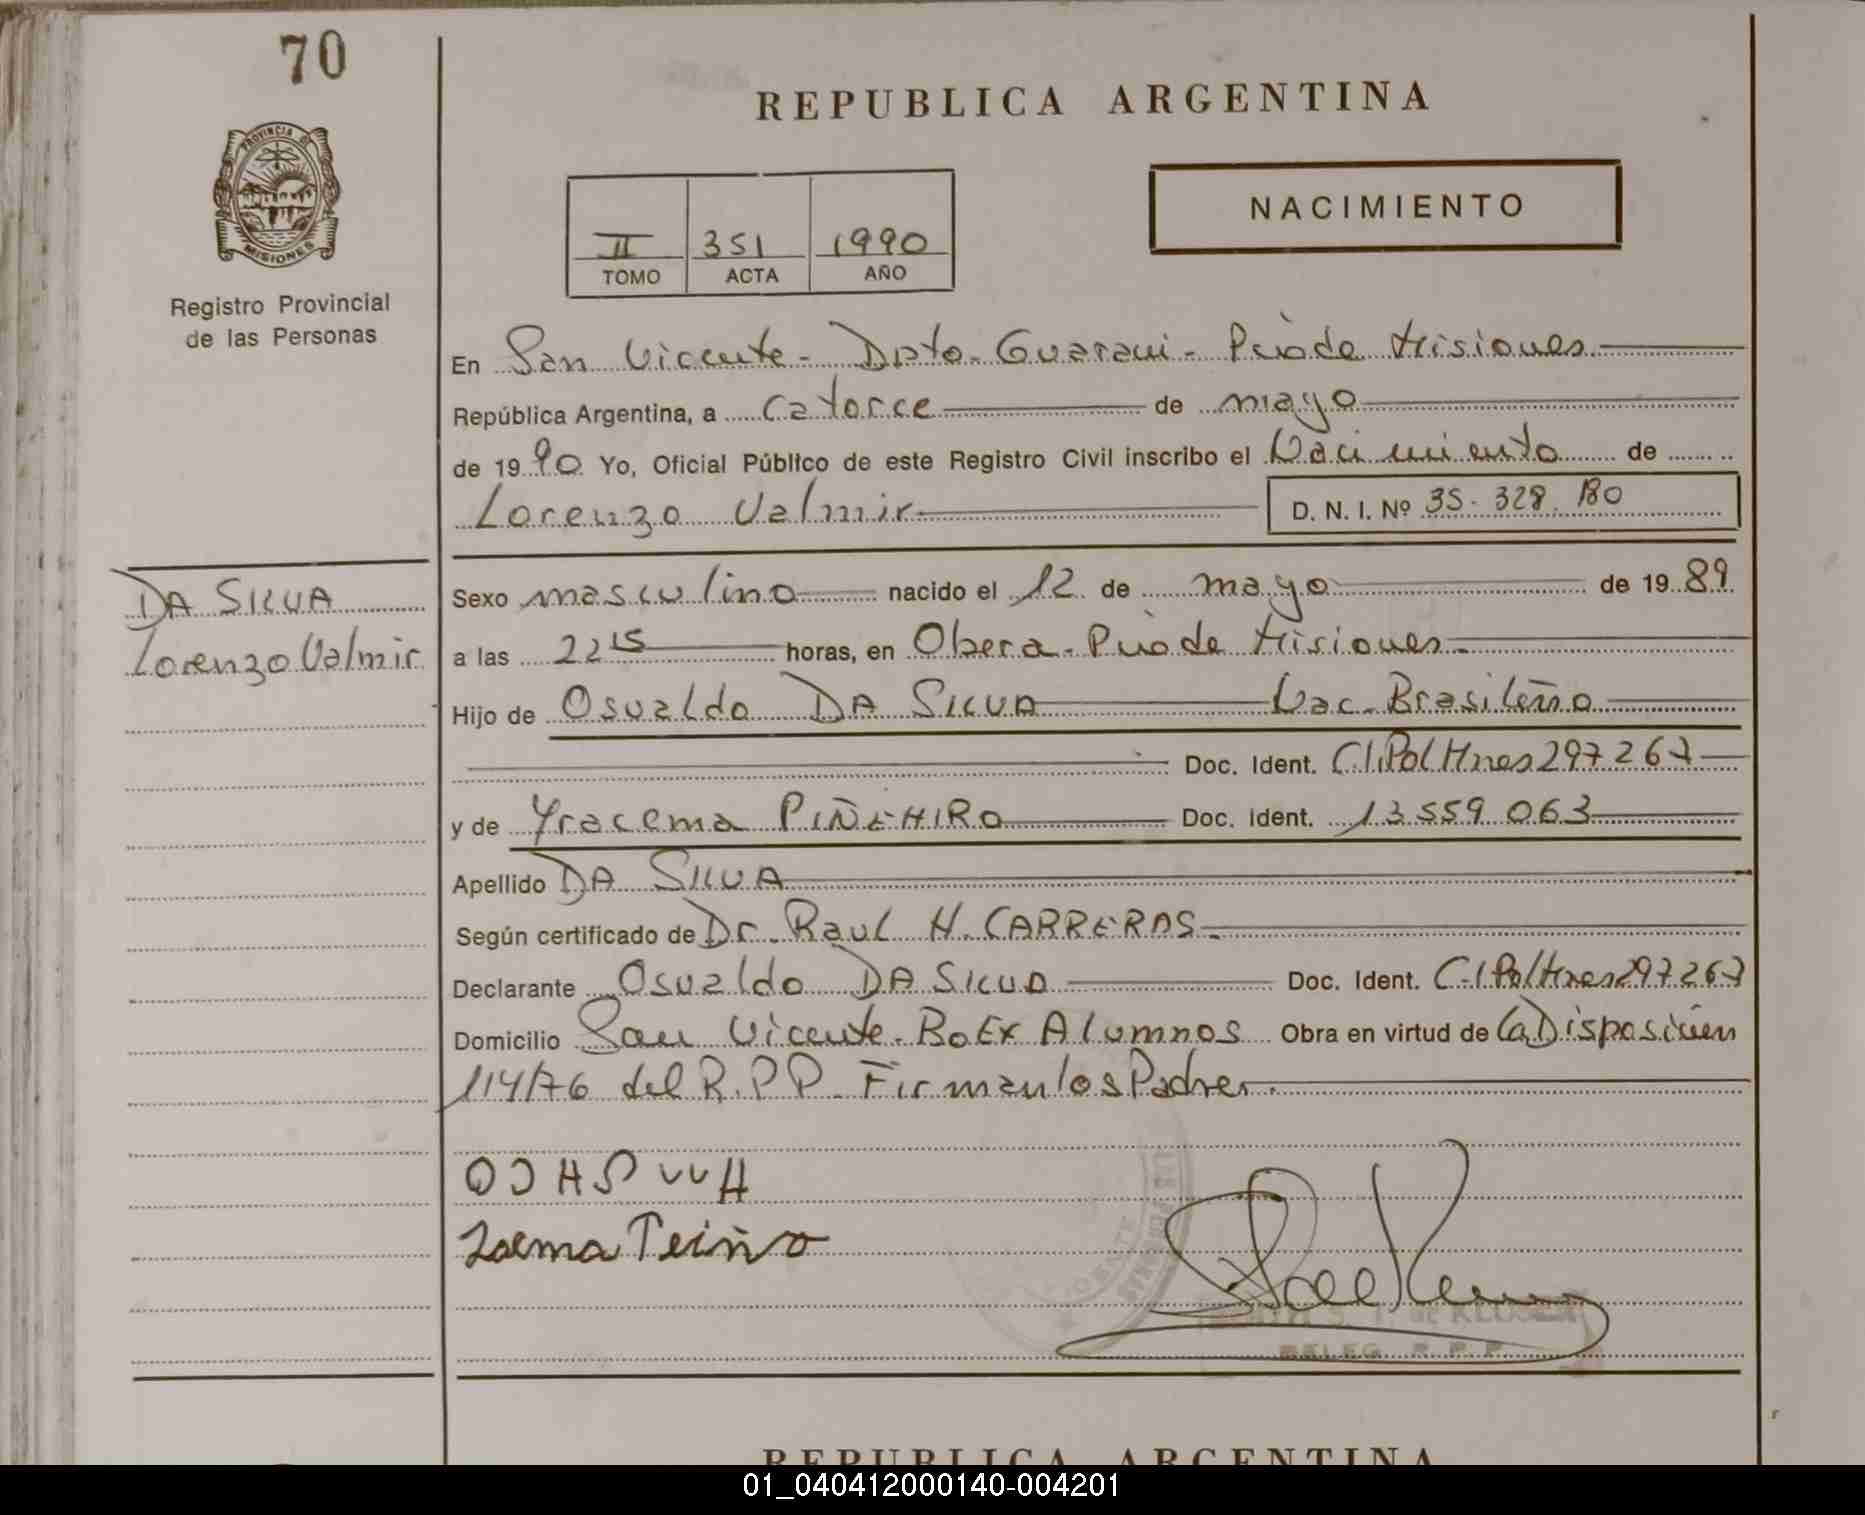 70
REPUBLICA ARGENTINA
PROVINCIA DE
MISIONES
Registro Provincial
de las Personas
NACIMIENTO
II 351 1990
TOMO ACTA AÑO
En San Vicente - Dpto. Guarani - Pciade Misiones
República Argentina, a catorce de mayo
de 1990 Yo, Oficial Público de este Registro Civil inscribo el Nacimiento de
Lorenzo Valmir D. N. I. Nº 35. 328. 180
DA SILVA
Lorenzo Valmir
Sexo masculino nacido el 12 de mayo de 1989
a las 22 15 horas, en Obera - Pciade Misiones
Hijo de Osvaldo DA SILVA Nac. Brasileño
Doc. Ident. C.I.Pol Mnes 297267
y de Yracema PIÑEHIRO Doc. Ident. 13559063
Apellido DA SILVA
Según certificado de Dr. Raul H. CARRERAS
Declarante Osvaldo DA SILVA Doc. Ident. C.I Pol Mnes 297267
Domicilio San Vicente - Bo Ex Alumnos Obra en virtud de la Disposicien
114/76 del R.P.P. Firman los Padres.
DELEG. R. P. P.
REPUBLICA ARGENTINA
01_040412000140-004201